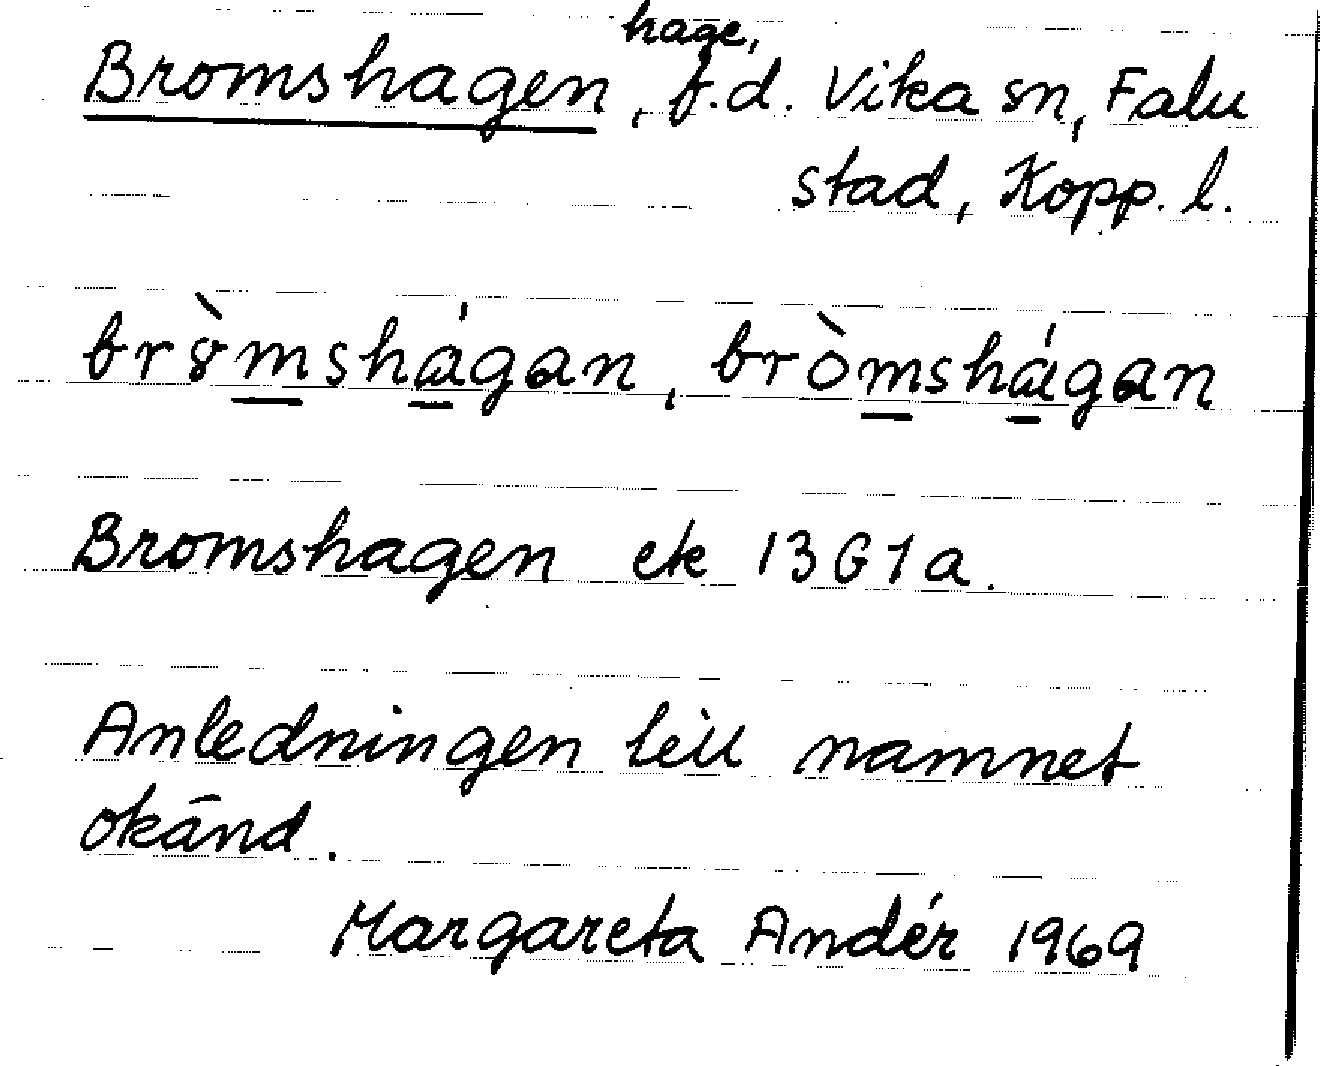 hage,
Bromshagen, f.d. Vika sn, Falu
stad, Kopp. l.
br8̀mshágan, bròmshágan
Bromshagen ek 13G1a.
Anledningen till namnet
okänd.
Margareta Andér 1969